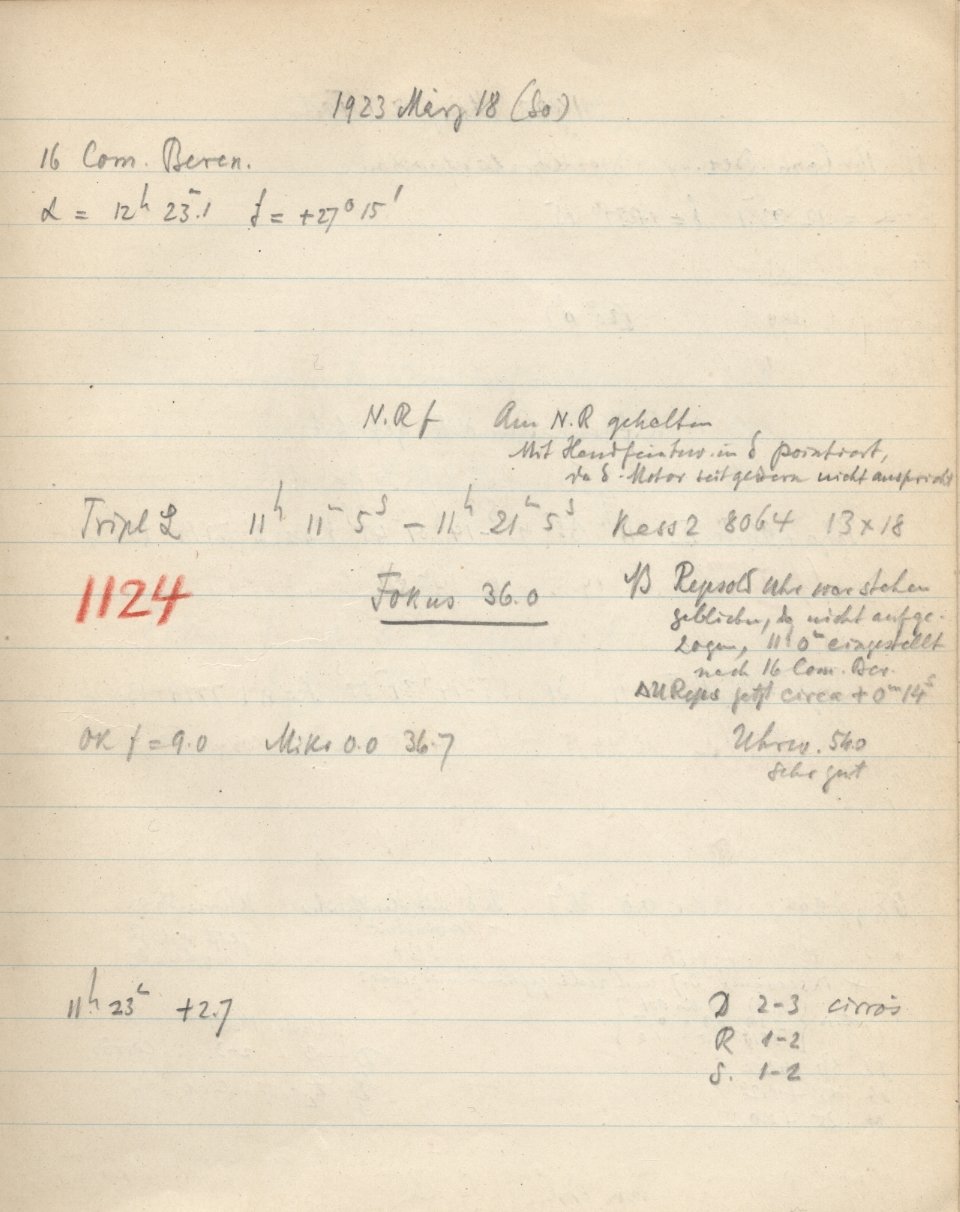 1923 März 18 (So)
16 Com. Beren.
α = 12h 23m.1 δ = +27° 15'
N.R f Am N.R gehalten
Mit Handfeinbew. in δ pointiert,
da δ-Motor seit gestern nicht anspricht
Tripl L 11h 11m 5s – 11h 21m 5s Kass 2 8064 13×18
1124 Fokus 36.0
NB Repsold Uhr war stehen
geblieben, da nicht aufge-
zogen, 11h 0m eingestellt
nach 16 Com. Ber.
ΔU Reps jetzt circa + 0m 14s
OK f = 9.0 Mikr 0.0 36.7
Uhrw. 540
sehr gut
11h 23m +2.7
D 2–3 cirrös
R 1–2
S. 1–2